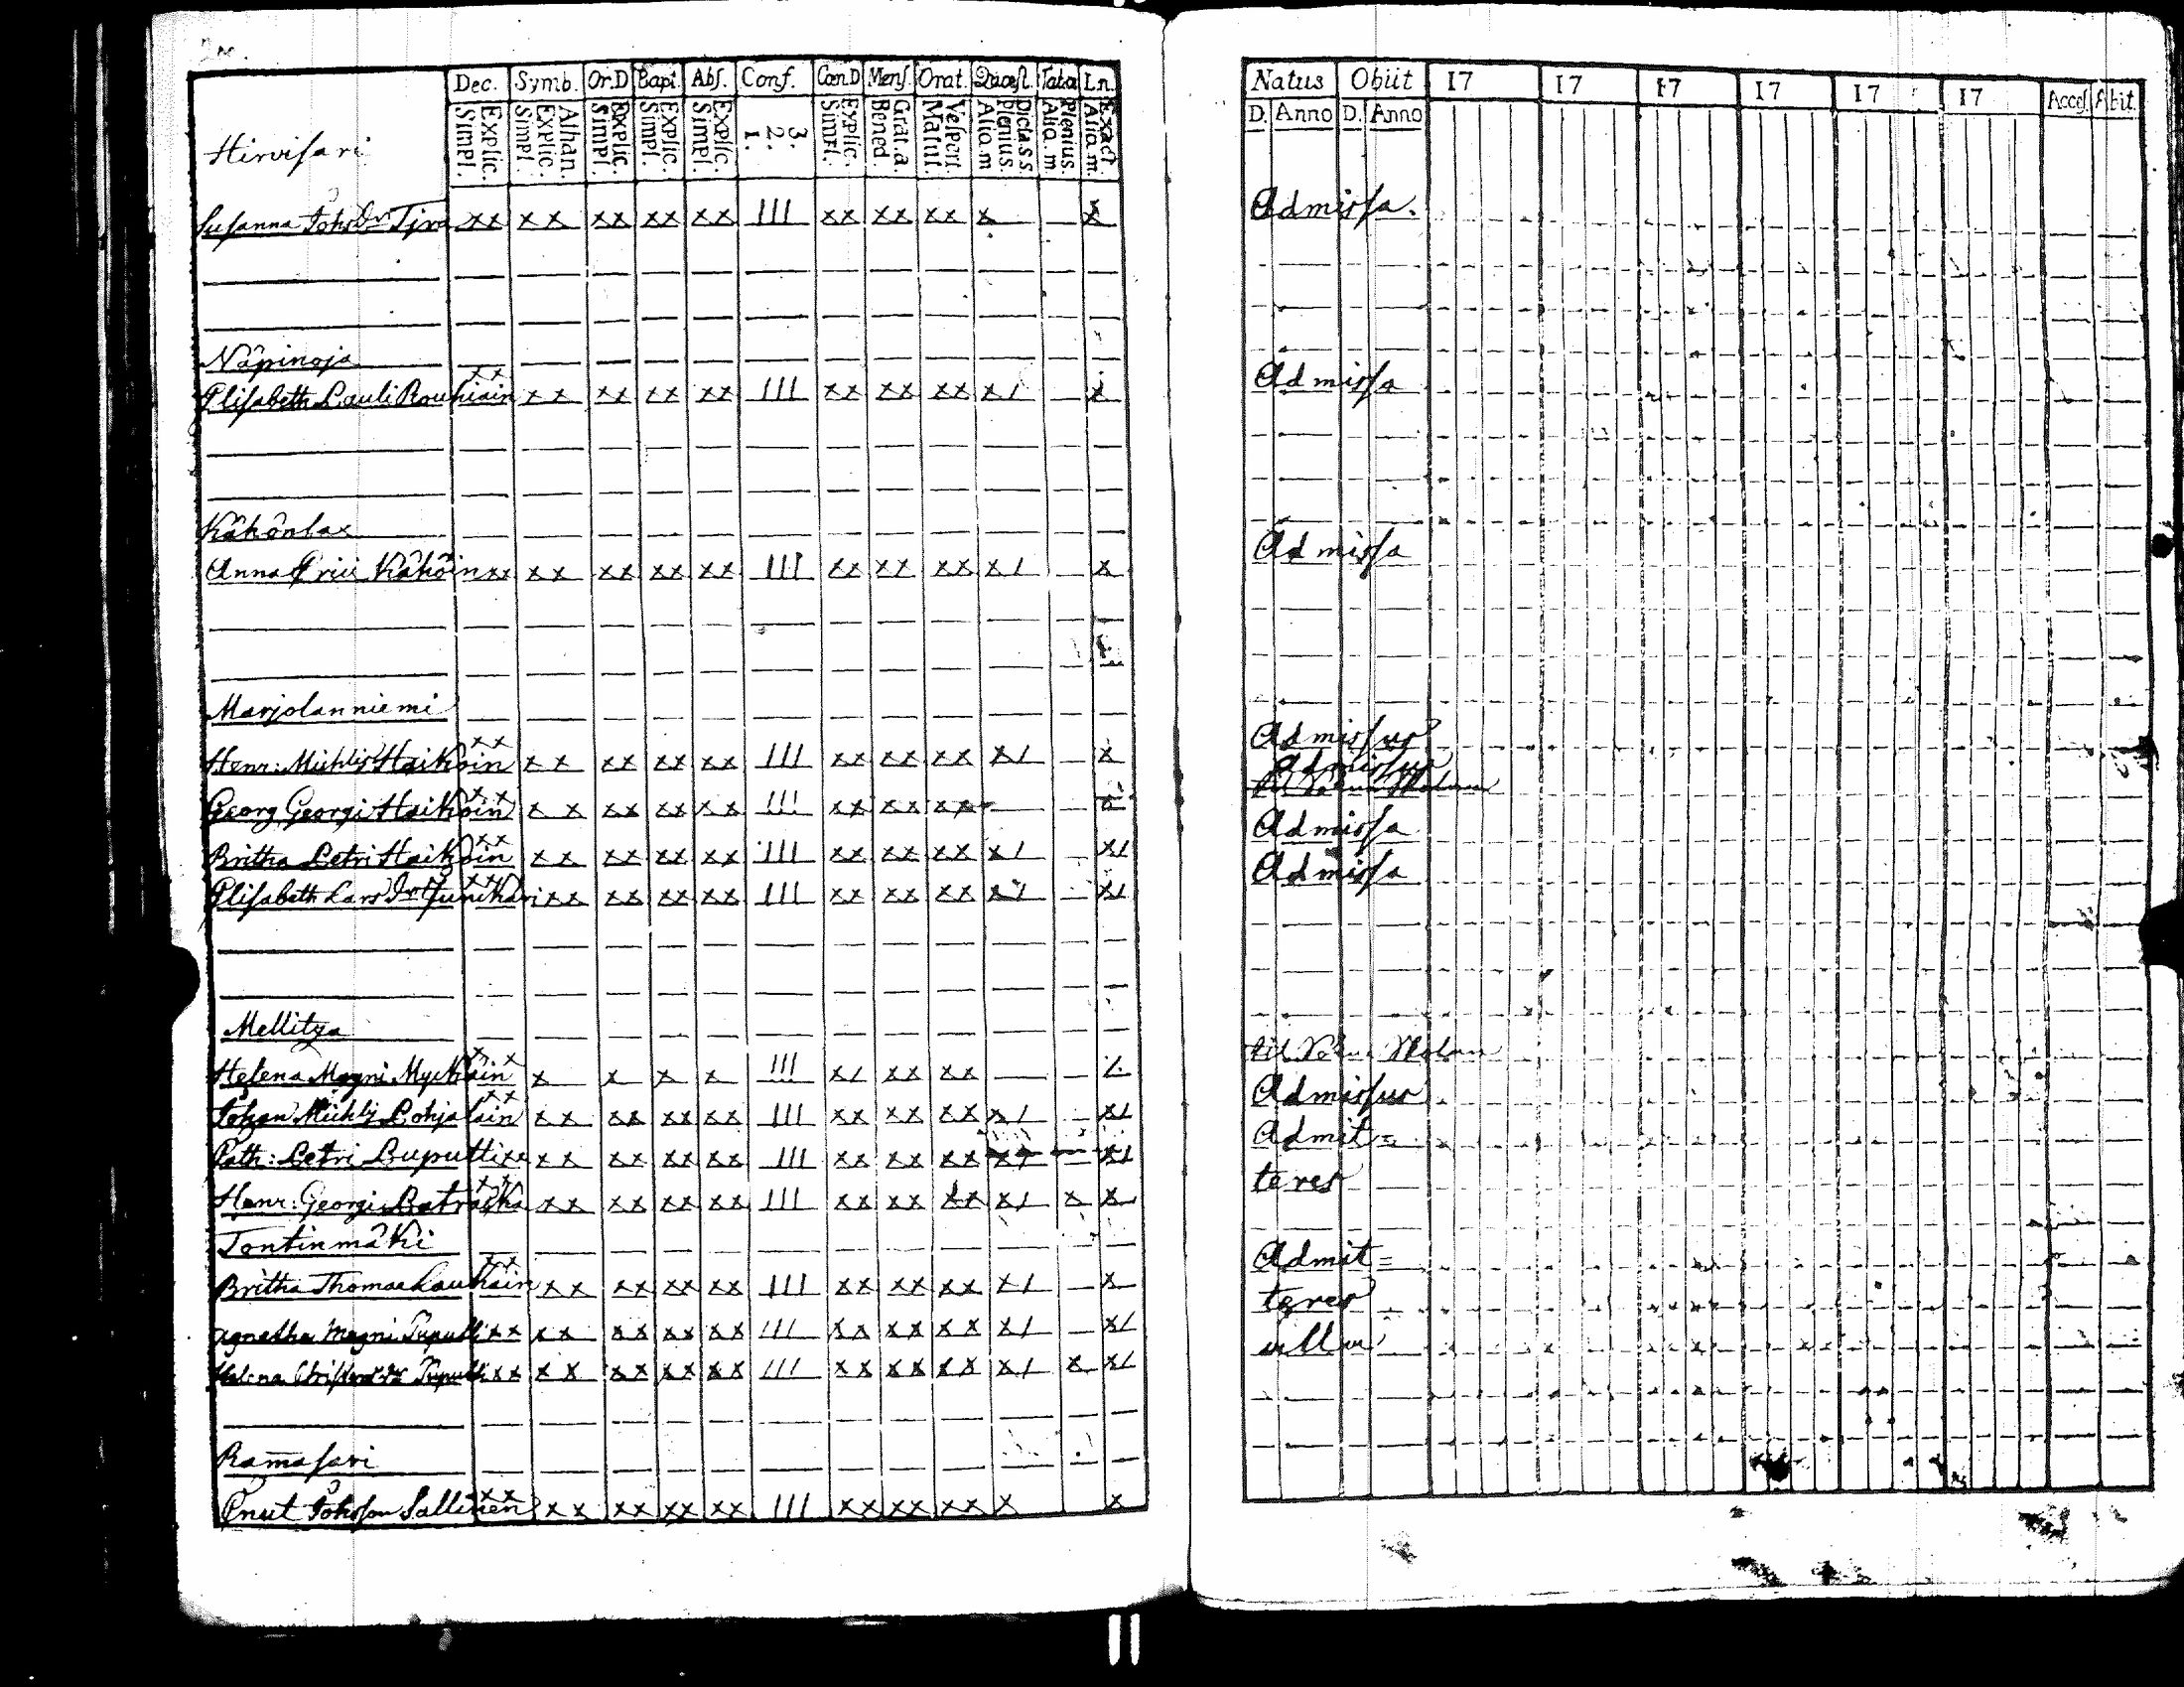 Dec. Symb. Or.D Bapt. Abſ. Conf. Cœn.D Menſ. Orat. Quæſt. Tab.æ Ln.
Simpl. Explic. Simpl. Explic. Athan. Simpl. Explic. Simpl. Explic. Simpl. Explic. 1. 2. 3. Simpl. Explic. Bened. Grat.a. Matut. Veſpert. Aliq.m Plenius. Dicta s s Aliq.m Plenius. Aliq.m. Exact.
Hirviſari
Suſanna Joh: Dr Tjra xx xx xx xx xx III xx xx xx x x
Näpinoja
Eliſabeth Pauli Rouhiain xx xx xx xx xx III xx xx xx x/ x
Kähönlax
Anna Erici Kähöin xx xx xx xx xx III xx xx xx x/ x
Marjolanniemi
Henr: Michlis Haikoin xx xx xx xx xx III xx xx xx x/ x
Georg Georgi Haikoin xx xx xx xx xx III xx xx xx x
Britha Petri Haikoin xx xx xx xx xx III xx xx xx x/ x/
Eliſabeth Lars Dr xx xx xx xx xx III xx xx xx x/ x/
Mellitza
Helena Magni xx x x x x III x/ xx xx /.
Johan Michlis Pohjalain xx xx xx xx xx III xx xx xx x/ x/
Cath: Petri Puputti xx xx xx xx xx III xx xx xx x/ x/
Henr: Georgi Ratraska xx xx xx xx xx III xx xx xx x/ x x
Tontinmäki
Britha Thomae Laukain xx xx xx xx xx III xx xx xx x/ x
Agnetha Magni Puputti xx xx xx xx xx III xx xx xx x/ x/
Helena Puputti xx xx xx xx xx III xx xx xx x/ x x/
Ramaſari
Cnut Johſon Sallinen xx xx xx xx xx III xx xx xx x x
Natus Obiit 17 17 17 17 17 17 Acceſ. Abit.
D. Anno D. Anno
Admiſſa.
Admiſſa
Admiſſa
Admiſſus
Admiſſus
Admiſſa
Admiſſa
til
Admiſſus
Admit=
teres
Admit=
teres